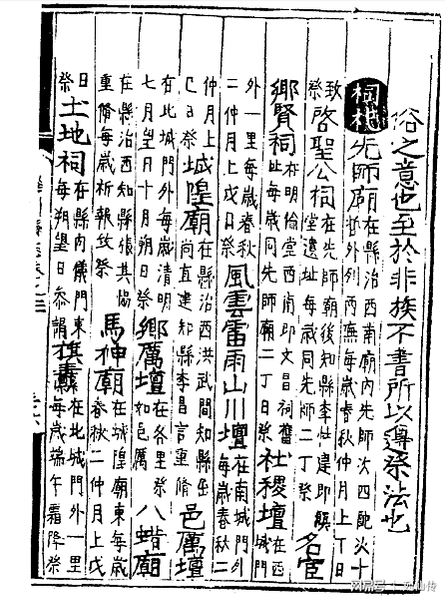 俗之意也至於非族不書所以遵祭法也
祠祀先師廟在縣治西南廟內先師次四配次十哲外列兩廡每歲春秋仲月上丁日
致祭啓聖公祠在先師廟後知縣李仕建即饌堂遺址每歲同先師二丁祭名宦
鄉賢祠亦明倫堂西南即文昌祠舊址每歲同先師廟二丁日祭社稷壇在西城門
外一里每歲春秋二仲月上戊日祭風雲雷雨山川壇在南城門外每歲春秋二
仲月上巳日祭城隍廟在縣治西洪武間知縣岳尚直建知縣李昌言重脩邑厲壇
在北城門外每歲清明七月望日十月朔日祭鄉厲壇在各里祭如邑厲八蜡廟
在縣治西知縣張其協重脩每歲祈報致祭馬神廟在城隍廟東每歲春秋二仲月上戊
日祭土地祠在縣內儀門東每朔望日參謁旗纛在北城門外一里每歲端午霜降祭